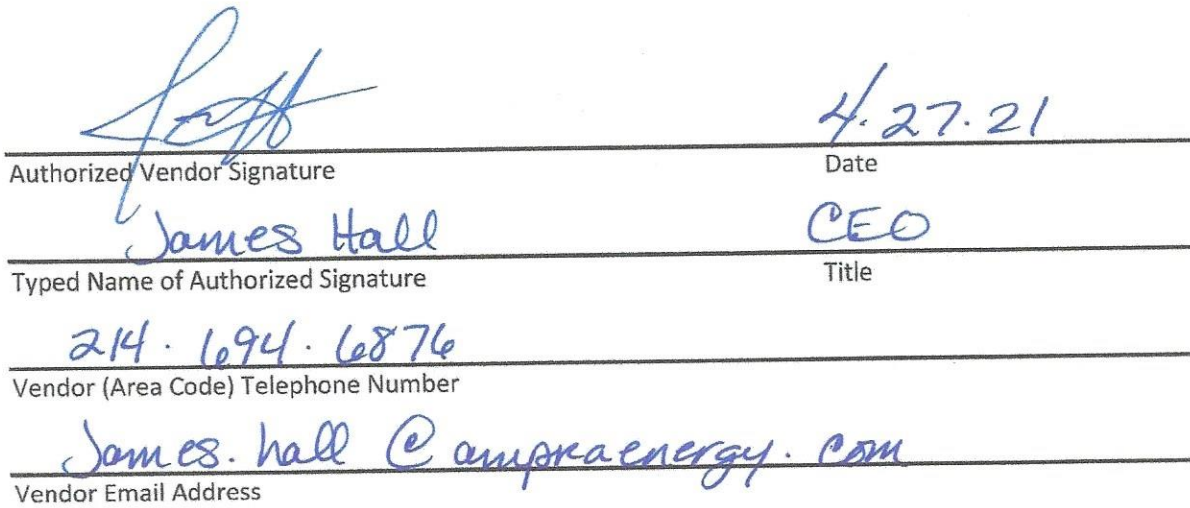 4.27.21
Authorized Vendor Signature Date
James Hall CEO
Typed Name of Authorized Signature Title
214.694.6876
Vendor (Area Code) Telephone Number
James.hall@ampraenergy.com
Vendor Email Address